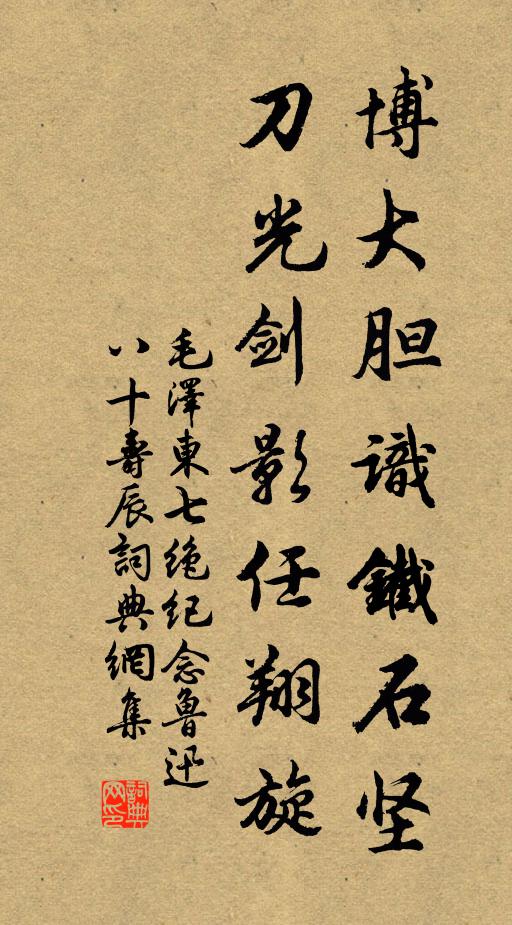 博大胆識鐵石坚
刀光剑影任翔旋
毛澤東七绝纪念魯迅
八十壽辰詞典網集
詞典网印